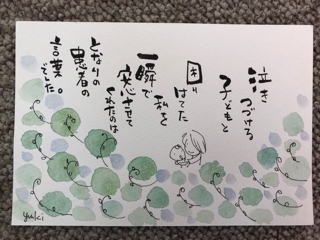 泣き
つづける
子どもと
困り
はてた
私を
一瞬で
笑わせて
くれたのは
となりの
患者の
言葉。
でした
yuki